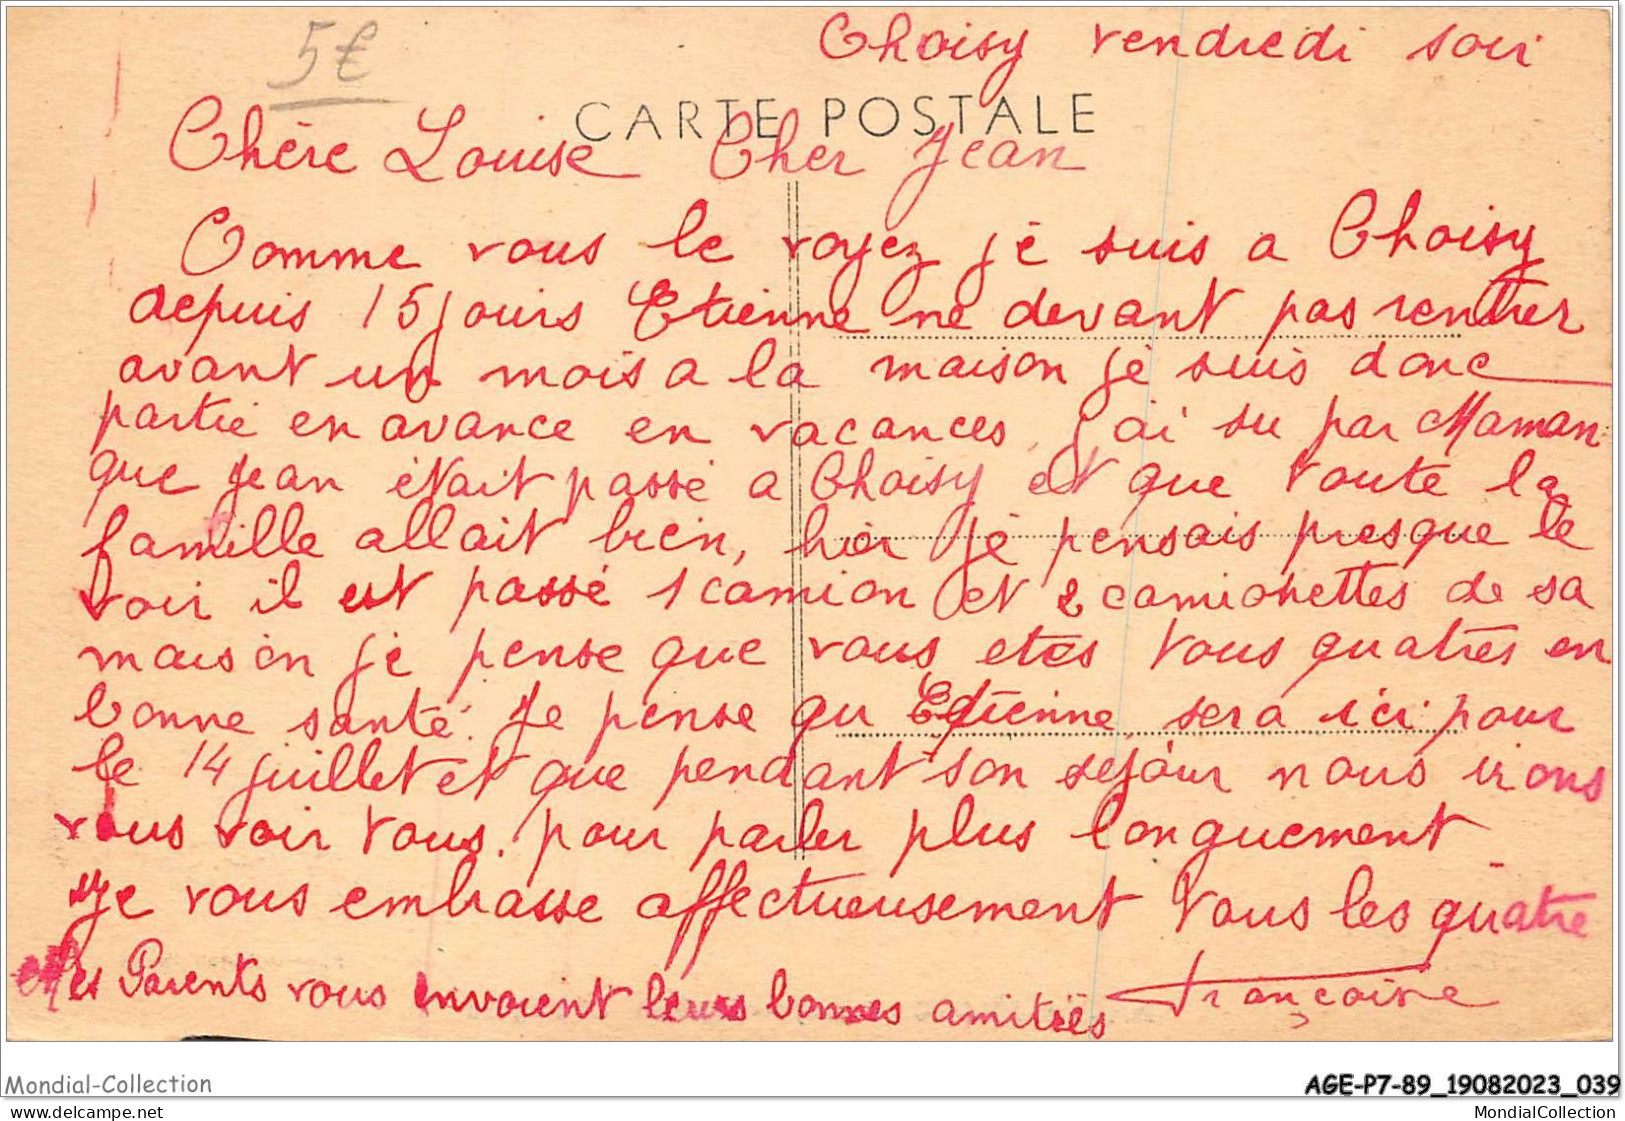 5€
Choisy vendredi soir
CARTE POSTALE
Chère Louise Cher Jean
Comme vous le voyez je suis a Choisy
depuis 15 jours Etienne ne devant pas rentrer
avant un mois a la maison je suis donc
partie en avance en vacances, j'ai su par Maman
que Jean était passé a Choisy et que toute la
famille allait bien, hier je pensais presque le
voir il est passé 1 camion et 2 camionettes de sa
maison je pense que vous etes tous quatres en
bonne santé. Je pense qu Etienne sera ici pour
le 14 juillet et que pendant son séjour nous irons
vous voir tous. pour parler plus longuement
Je vous embrasse affectueusement tous les quatre
Mes Parents vous envoient leurs bonnes amitiés Françoise
Mondial-Collection
AGE-P7-89_19082023_039
www.delcampe.net
MondialCollection